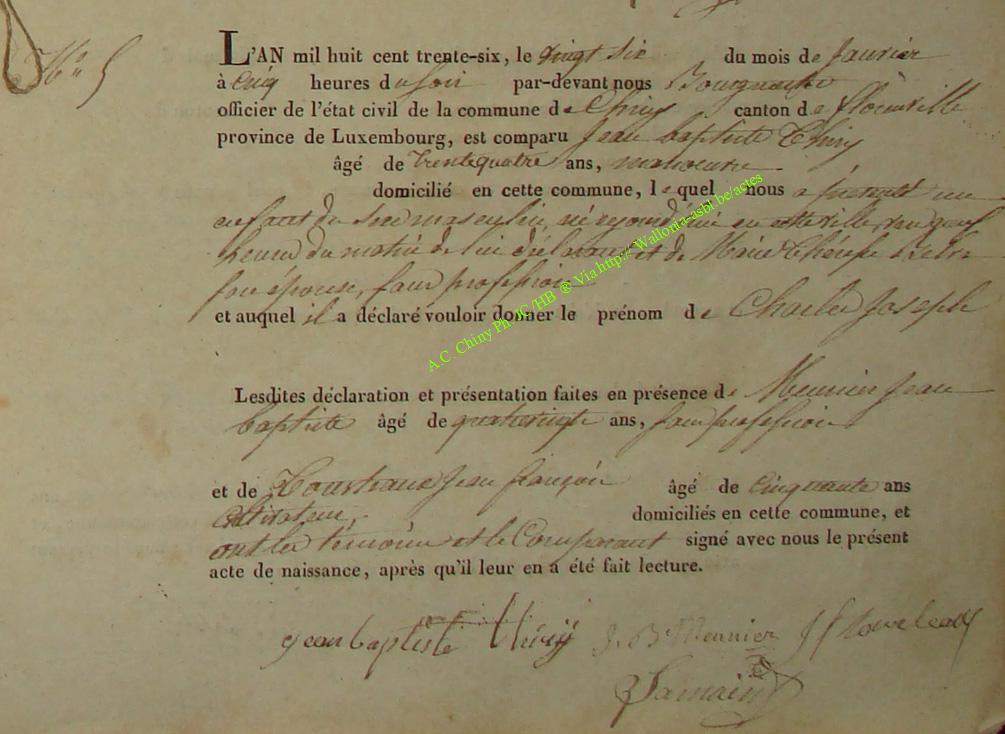 No 5
L'AN mil huit cent trente-six, le vingt six du mois de Janvier
à cinq heures du soir par-devant nous
officier de l'état civil de la commune de Chiny canton de florenville
province de Luxembourg, est comparu Jean baptiste
âgé de trente quatre ans, manoeuvre
domicilié en cette commune, lequel nous a présenté un
enfant du sexe masculin, né en cette ville,
heures du matin de lui déclarant et de Marie Thérèse
son épouse, sans profession
et auquel il a déclaré vouloir donner le prénom de Charles Joseph
Lesdites déclaration et présentation faites en présence de Meunier Jean
baptiste âgé de ans, sans profession
et de Jean françois âgé de cinquante ans
cultivateur, domiciliés en cette commune, et
ont les témoins et le Comparant signé avec nous le présent
acte de naissance, après qu'il leur en a été fait lecture.
jean baptiste J. B Meunier
A.C. Chiny Ph. JC/HB ® Via http://Wallonia-asbl.be/actes